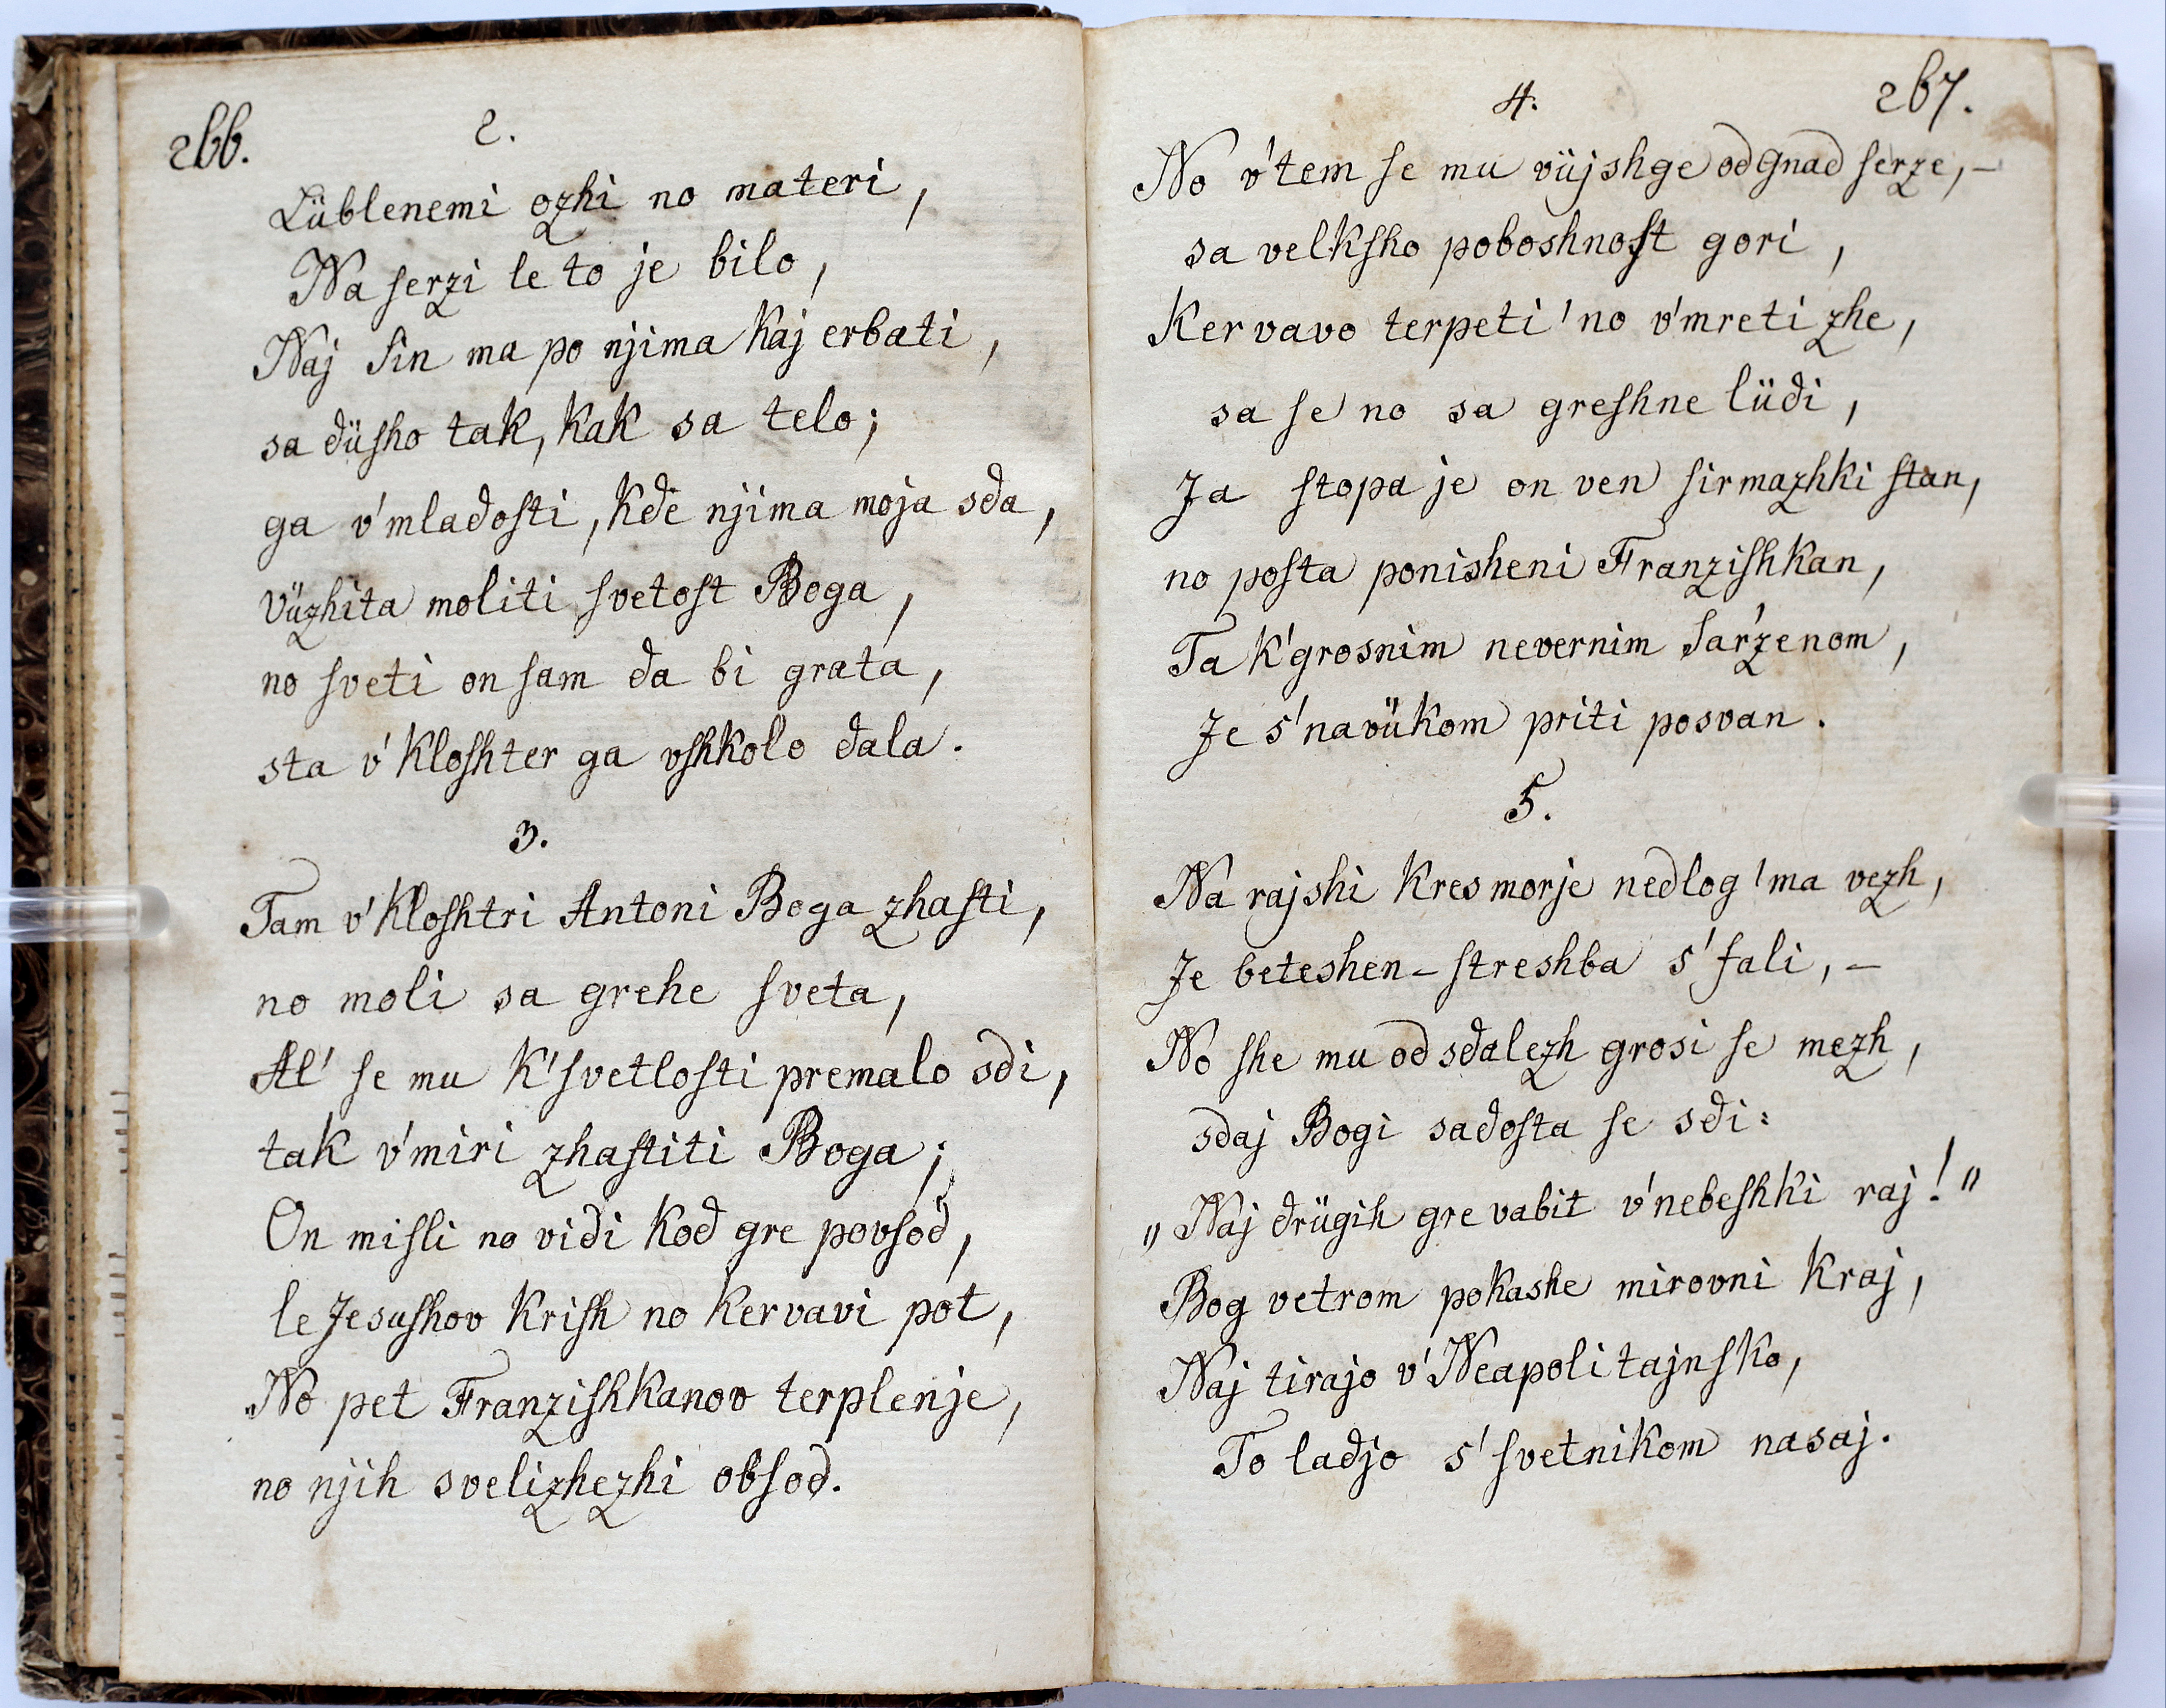 266.
2.
Lüblenemi ozhi no materi,
Na ſerzi le to je bilo,
Naj ſin ma po njima kaj erbati,
sa düſho tak, kak sa telo;
ga v'mladoſti, kde njima moja sda,
Vüzhita moliti ſvetoſt Boga,
no ſveti on ſam da bi grata,
sta v'kloſhter ga vſhkolo dala.
3.
Tam v'kloſhtri Antoni Boga zhaſti,
no moli sa grehe ſveta,
Al' ſe mu k'ſvetloſti premalo sdi,
tak v'miri zhaſtiti Boga;
On miſli no vidi kod gre povſod,
le Jesuſhov Kriſh no kervavi pot,
No pet Franziſhkanov terplenje,
no njih svelizhezhi obſod.
267.
4.
No v'tem ſe mu vüjshge od gnad ſerze,–
sa velkſho poboshnoſt gori,
Kervavo terpeti 'no v'mreti zhe,
sa ſe no sa greſhne lüdi,
Ja ſtopa je on ven ſirmazhki ſtan,
no poſta ponisheni Franziſhkan,
Ta k'grosnim nevernim Sar'zenom,
Je s'navükom priti posvan.
5.
Na rajshi kres morje nedlog 'ma vezh,
Je beteshen – ſtreshba s'fali, –
No she mu od sdalezh grosi ſe mezh,
sdaj Bogi sadoſta ſe sdi:
„Naj drügih gre vabit v'nebeſhki raj!"
Bog vetrom pokashe mirovni kraj,
Naj tirajo v'Neapolitajnſko,
To ladjo s'ſvetnikom nasaj.